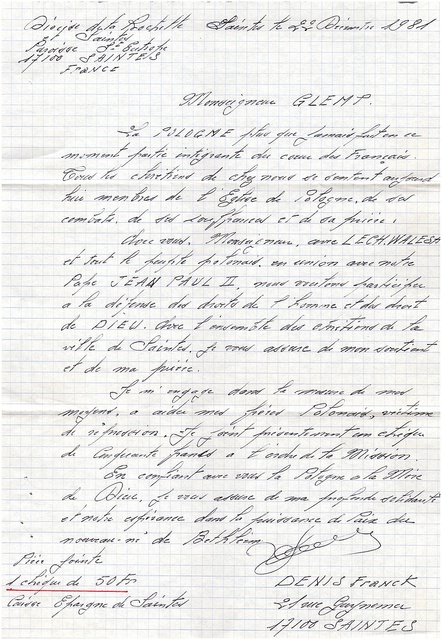 Diocèse de la Rochelle Saintes le 22 Décembre 1981
Saintes
Paroisse St Eutrope
17100 SAINTES
FRANCE
Monseigneur GLEMP.
La POLOGNE plus que jamais fait en ce
moment partie intégrante du coeur des Français.
Tous les chrétiens de chez nous se sentent aujourd
hui membres de l'Eglise de Pologne, de ses
combats, de ses souffrances et de sa prière.
Avec vous, Monseigneur, avec LECH WALESA
et tout le peuple polonais, en union avec notre
Pape JEAN PAUL II, nous voulons participer
à la défense des droits de l'homme et des droit
de DIEU. Avec l'ensemble des chrétiens de la
ville de Saintes, je vous assure de mon soutient
et de ma prière.
Je m'engage dans la mesure de mes
moyens, à aider mes frères Polonais, victime
de répression. Je joint présentement un chèque
de Cinquante francs à l'ordre de la Mission.
En confiant avec vous la Pologne à la Mère
de Dieu, je vous assure de ma profonde solidarité
et notre espérance dans la puissance de Paix du
nouveau-né de Bethléem
Pièce jointe
1 chèque de 50 Fr
Caisse Epargne de Saintes
DENIS Franck
21 rue Guynemer
17100 SAINTES